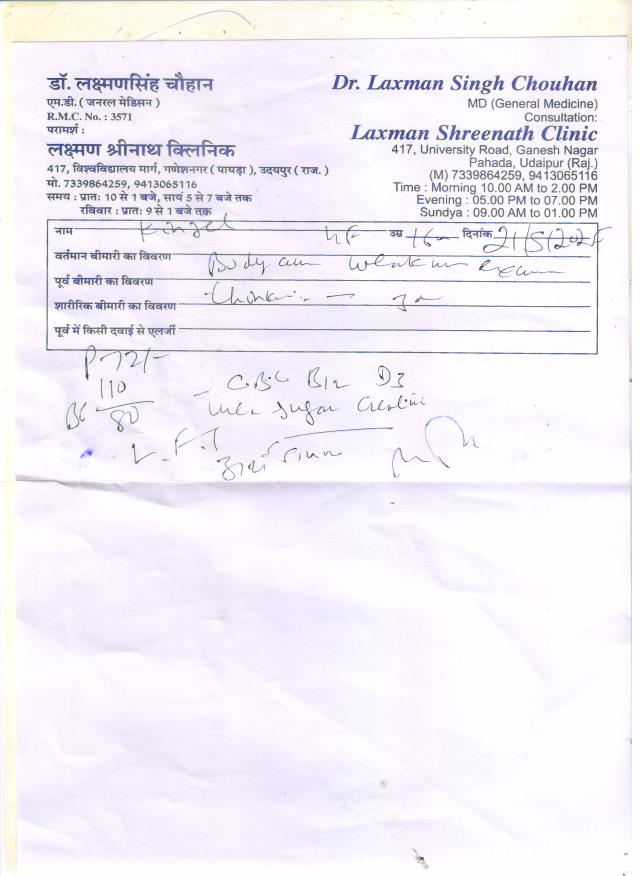 डॉ. लक्ष्मणसिंह चौहान
एम.डी. ( जनरल मेडिसन )
R.M.C. No. : 3571
परामर्श :
लक्ष्मण श्रीनाथ क्लिनिक
417, विश्वविद्यालय मार्ग, गणेशनगर ( पायड़ा ), उदयपुर ( राज. )
मो. 7339864259, 9413065116
समय : प्रात: 10 से 1 बजे, सायं 5 से 7 बजे तक
रविवार : प्रात: 9 से 1 बजे तक
Dr. Laxman Singh Chouhan
MD (General Medicine)
Consultation:
Laxman Shreenath Clinic
417, University Road, Ganesh Nagar
Pahada, Udaipur (Raj.)
(M) 7339864259, 9413065116
Time : Morning 10.00 AM to 2.00 PM
Evening : 05.00 PM to 07.00 PM
Sundya : 09.00 AM to 01.00 PM
नाम उम्र दिनांक
वर्तमान बीमारी का विवरण Body
पूर्व बीमारी का विवरण
शारीरिक बीमारी का विवरण
पूर्व में किसी दवाई से एलर्जी
P-72/-
110
80
CBC B12 D3
Urea Sugar Creatini
L.F.T